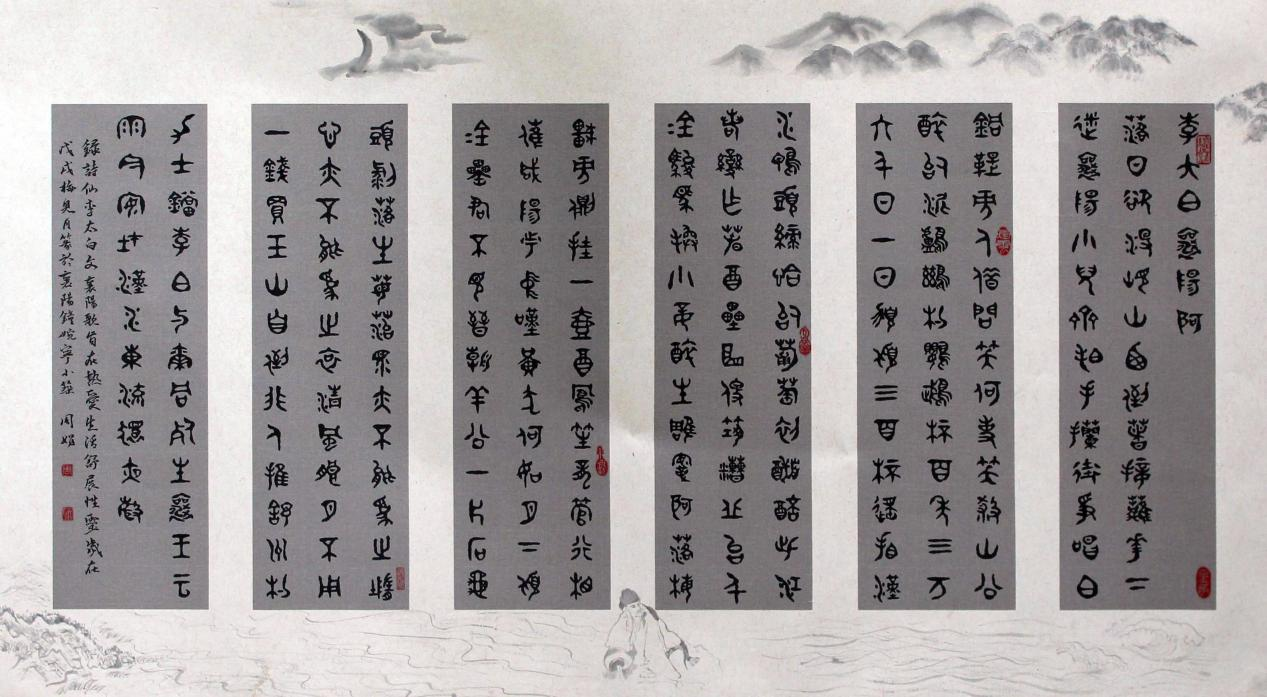 李太白襄陽歌
落日欲沒峴山西倒著接䍦花下
迷襄陽小兒齊拍手攔街爭唱白
銅鞮旁人借問笑何事笑殺山公
醉似泥鸕鶿杓鸚鵡杯百年三万
六千日一日須傾三百杯遙看漢
水鴨頭綠恰似葡萄初醱醅此江
若變作春酒壘麴便築糟丘臺千
金駿馬換小妾醉坐雕鞍歌落梅
車旁側挂一壺酒鳳笙龍管行相
催咸陽市中嘆黃犬何如月下傾
金罍君不見晉朝羊公一片石龜
頭剝落生莓苔淚亦不能為之墮
心亦不能為之哀清風朗月不用
一錢買玉山自倒非人推舒州杓
力士鐺李白與爾同死生襄王云
雨今安在漢水東流猿夜聲
錄詩仙李太白文襄陽歌旨在熱愛生活舒展性靈歲在
戊戌梅見月篆於襄陽鐘婉寧小築 周